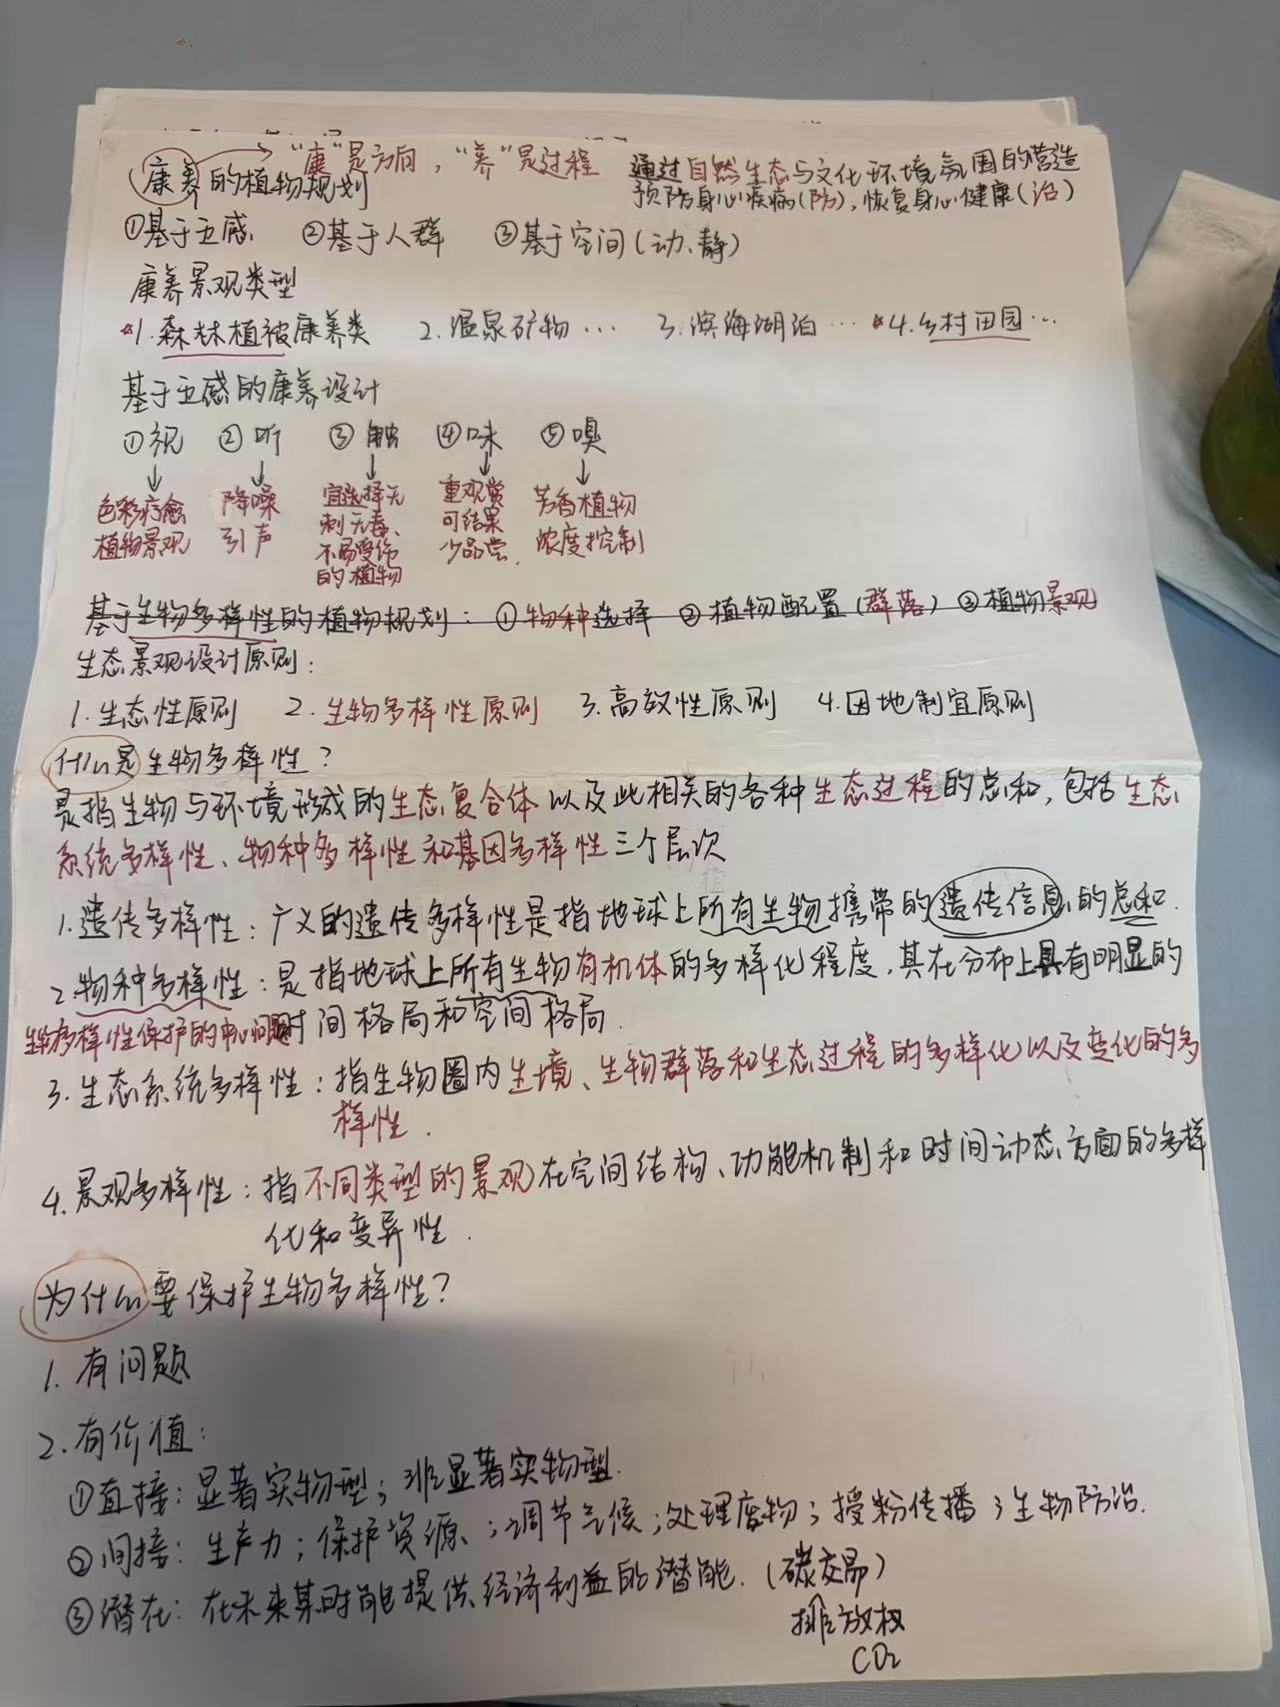 康养的植物规划 "康"是方向，"养"是过程 通过自然生态与文化环境氛围的营造
预防身心疾病(防)，恢复身心健康(治)
①基于五感 ②基于人群 ③基于空间(动、静)
康养景观类型
*1.森林植被康养类 2.温泉矿物… 3.滨海湖泊… *4.乡村田园…
基于五感的康养设计
①视 ②听 ③触 ④味 ⑤嗅
↓ ↓ ↓ ↓ ↓
色彩疗愈 降噪 宜选择无 重观赏 芳香植物
植物景观 引声 刺无毒、 可结果 浓度控制
不易受伤 少品尝.
的植物
基于生物多样性的植物规划：①物种选择 ②植物配置(群落) ③植物景观
生态景观设计原则：
1.生态性原则 2.生物多样性原则 3.高效性原则 4.因地制宜原则
什么是生物多样性？
是指生物与环境形成的生态复合体以及此相关的各种生态过程的总和，包括生态
系统多样性、物种多样性和基因多样性三个层次
1.遗传多样性：广义的遗传多样性是指地球上所有生物携带的遗传信息的总和.
2.物种多样性：是指地球上所有生物有机体的多样化程度，其在分布上具有明显的
生物多样性保护的中心问题 时间格局和空间格局.
3.生态系统多样性：指生物圈内生境、生物群落和生态过程的多样化以及变化的多
样性.
4.景观多样性：指不同类型的景观在空间结构、功能机制和时间动态方面的多样
化和变异性.
为什么要保护生物多样性？
1.有问题
2.有价值：
①直接：显著实物型；非显著实物型.
②间接：生产力；保护资源；调节气候；处理废物；授粉传播；生物防治.
③潜在：在未来某时能提供经济利益的潜能.(碳交易)
排放权
CO₂